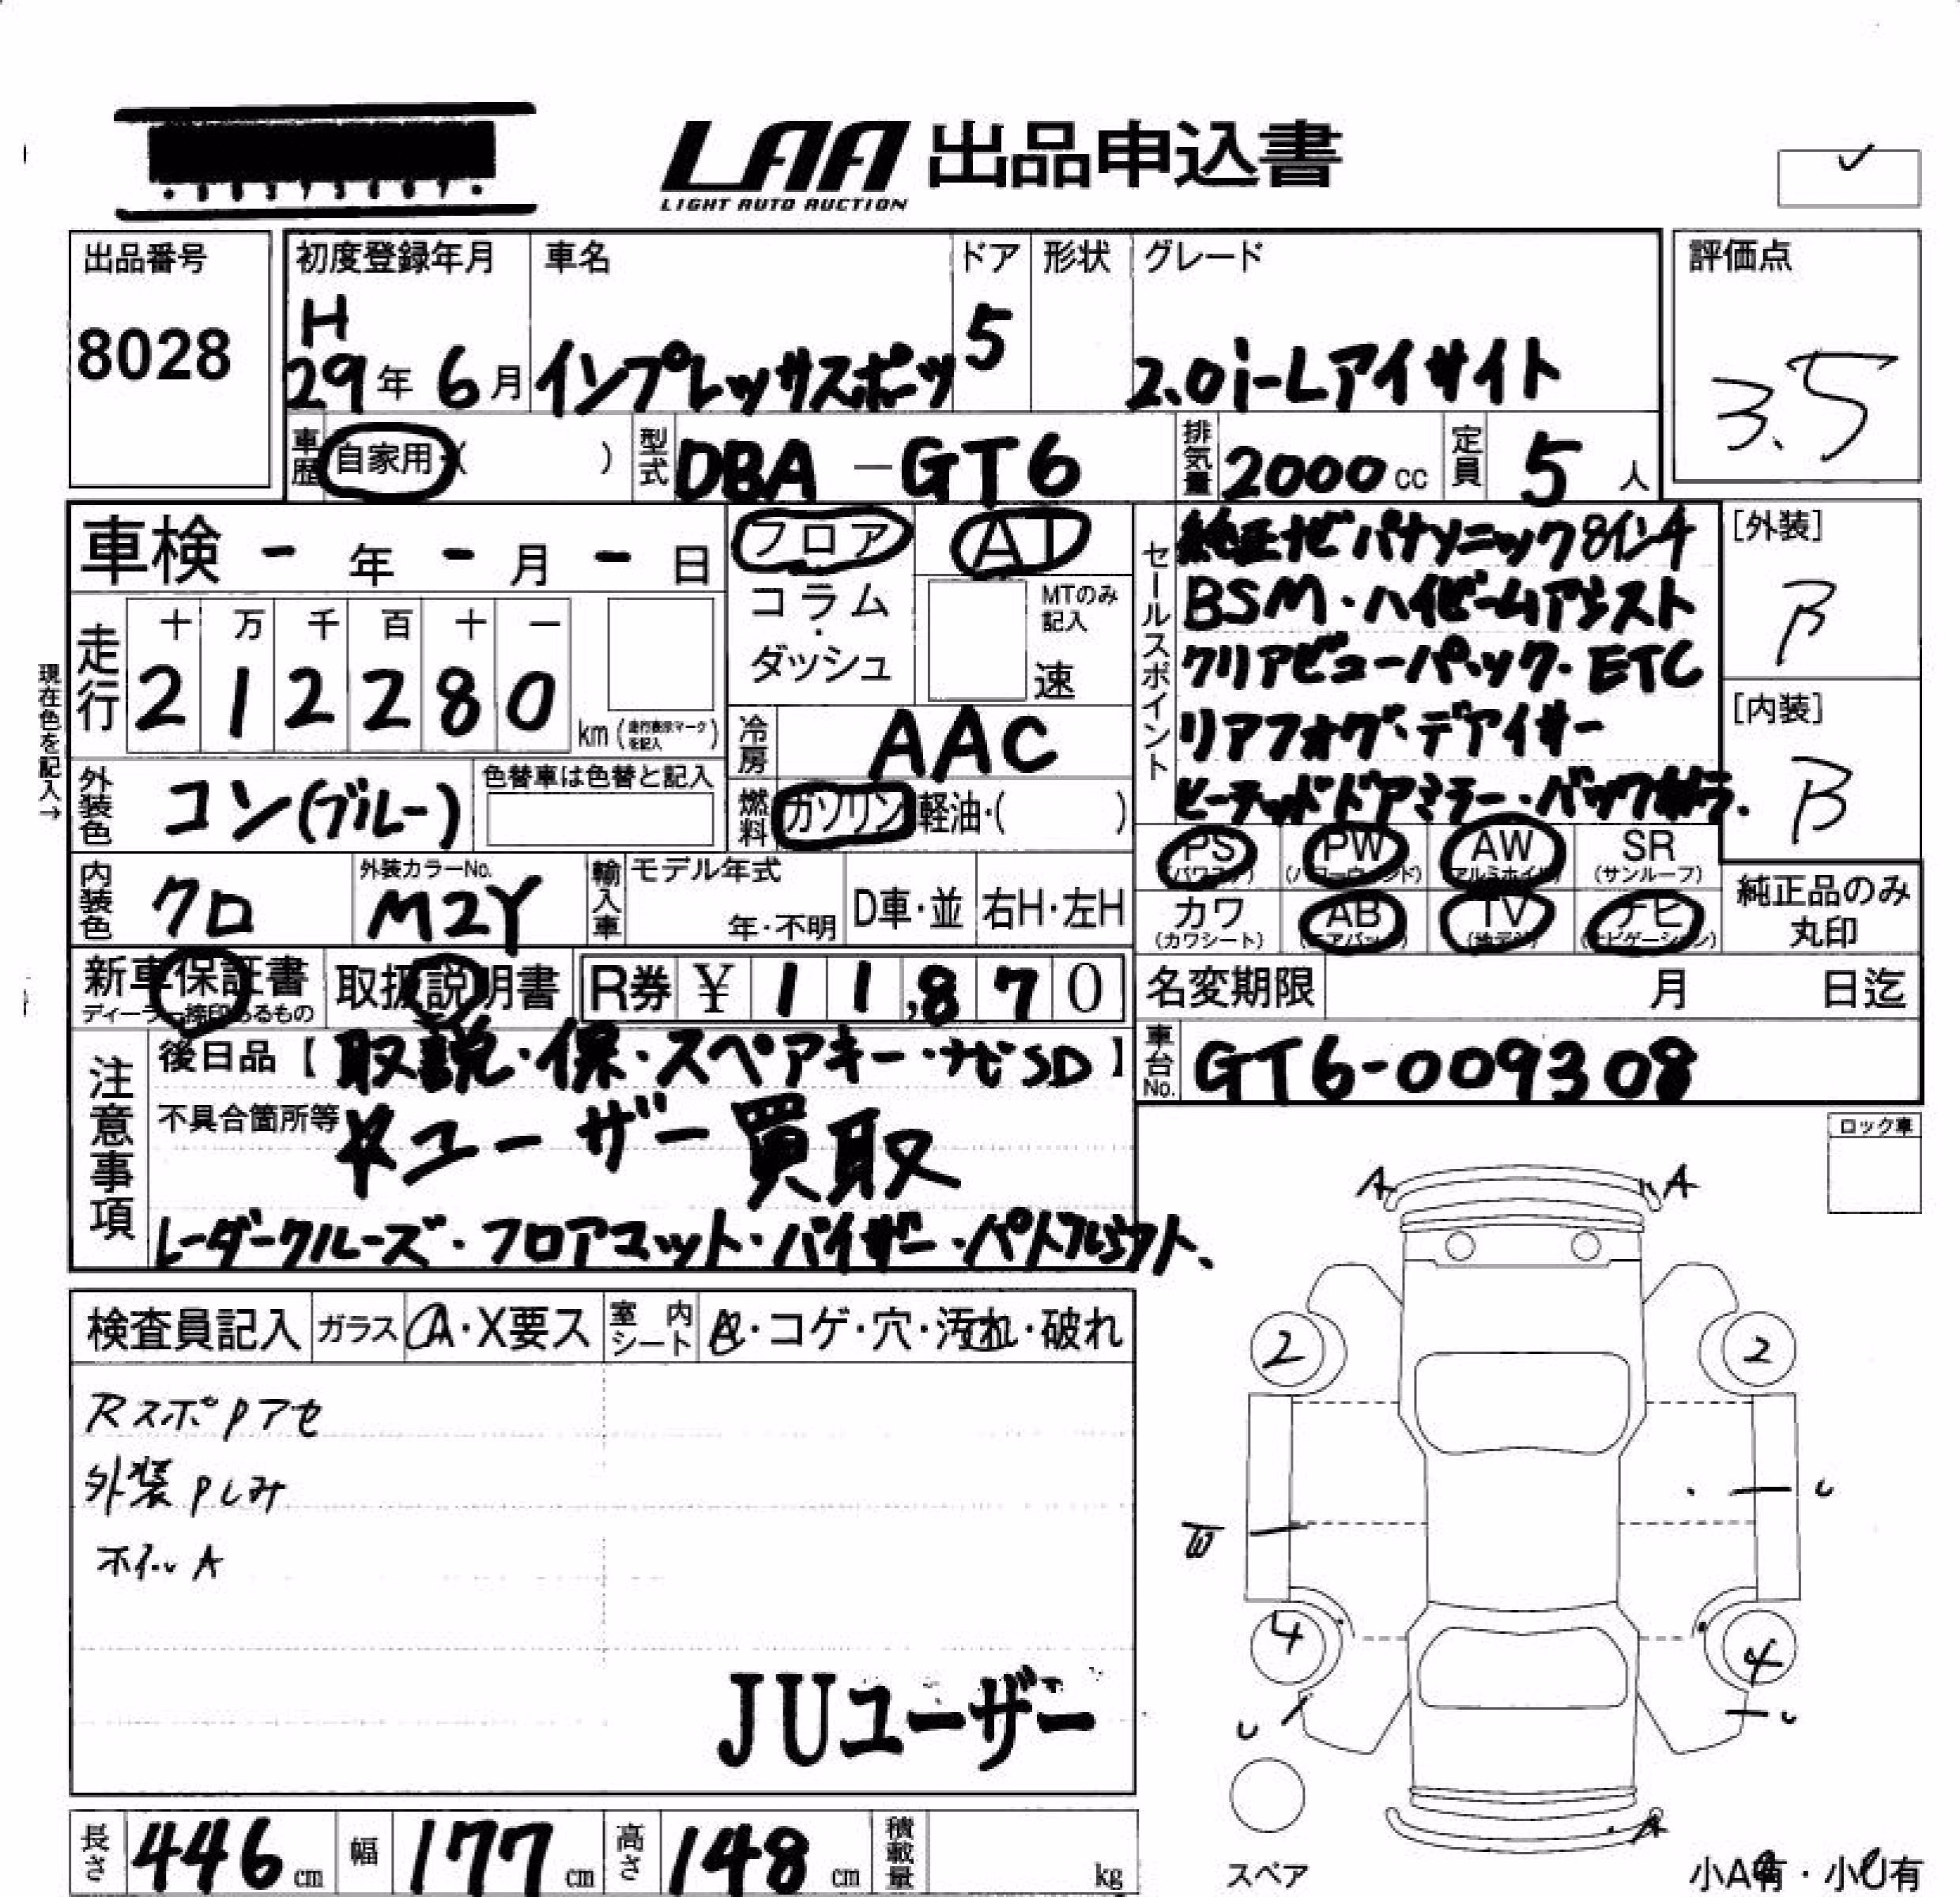 LAA 出品申込書
LIGHT AUTO AUCTION
出品番号
8028
初度登録年月
H
29年 6月
車名
インプレッサスポーツ
ドア
5
形状
グレード
2.0i-Lアイサイト
評価点
3.5
車歴 自家用・( )
型式 DBA-GT6
排気量 2000cc
定員 5人
車検 - 年 - 月 - 日
フロア
コラム・ダッシュ
AT
MTのみ記入
速
セールスポイント
純正ナビ パナソニック8インチ
BSM・ハイビームアシスト
クリアビューパック・ETC
リアフォグ・デアイサー
ヒーテッドドアミラー・バックカメラ.
[外装]
B
[内装]
B
現在色を記入→
走行
十 万 千 百 十 一
2 1 2 2 8 0 km (走行表示マークを記入)
冷房 AAC
外装色 コン(ブルー)
色替車は色替と記入
燃料 ガソリン 軽油・( )
PS (パワステ) PW (パワーウィンド) AW (アルミホイル) SR (サンルーフ)
カワ (カワシート) AB (エアバック) TV (地デジ) ナビ (ナビゲーション)
純正品のみ丸印
内装色 クロ
外装カラーNo. M2Y
輸入車 モデル年式 年・不明 D車・並 右H・左H
新車保証書
ディーラー捺印あるもの
取扱説明書
R券 ¥ 11,870
名変期限 月 日迄
車台No. GT6-009308
注意事項
後日品【取説・保・スペアキー・ナビSD】
不具合箇所等 ※ユーザー買取
レーダークルーズ・フロアマット・バイザー・パドルシフト、
ロック車
検査員記入 ガラス A・X要ス 室内シート ・コゲ・穴・汚れ・破れ
RスポPアセ
外装Pしみ
ホイルA
JUユーザー
A A
2 2
U
W
4 4
U U
A
スペア
小A有・小U有
長さ 446cm 幅 177cm 高さ 148cm 積載量 kg